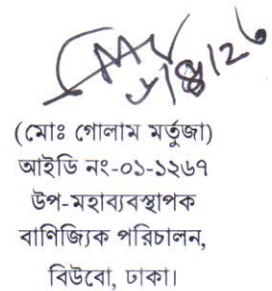 (মোঃ গোলাম মর্তুজা)
আইডি নং-০১-১২৬৭
উপ-মহাব্যবস্থাপক
বাণিজ্যিক পরিচালন,
বিউবো, ঢাকা।